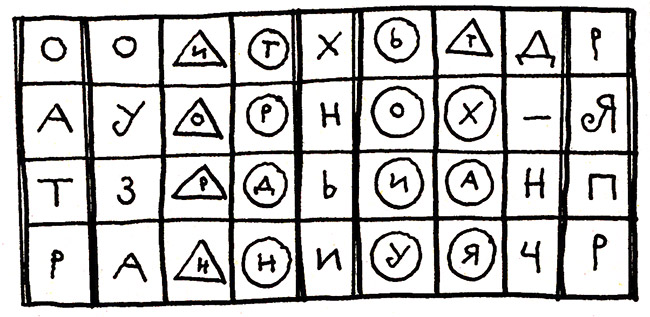 О О И Т Х Ь Т Д Р
А У О Р Н О Х — Я
Т З Р Д Ь И А Н П
Р А Н Н И У Я Ч Р